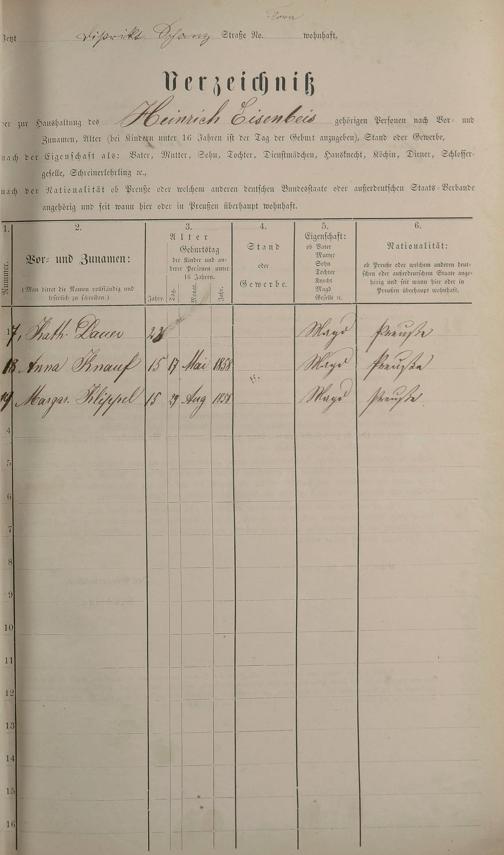 Jetzt Distrikt Schanz Straße No. wohnhaft,
Verzeichniß
der zur Haushaltung des Heinrich Eisenbeis gehörigen Personen nach Vor- und
Zunamen, Alter (bei Kindern unter 16 Jahren ist der Tag der Geburt anzugeben), Stand oder Gewerbe,
nach der Eigenschaft als: Vater, Mutter, Sohn, Tochter, Dienstmädchen, Hausknecht, Köchin, Diener, Schlosser-
geselle, Schreinerlehrling ꝛc.,
nach der Nationalität ob Preuße oder welchem anderen deutschen Bundesstaate oder außerdeutschen Staats-Verbande
angehörig und seit wann hier oder in Preußen überhaupt wohnhaft.
1. 2. 3. 4. 5. 6.
Nummer.
Vor- und Zunamen:
(Man bittet die Namen vollständig und
leserlich zu schreiben.)
Alter
Geburtstag
der Kinder und an-
derer Personen unter
16 Jahren.
Jahre. Tag. Monat. Jahr.
Stand
oder
Gewerbe.
Eigenschaft:
ob Vater
Mutter
Sohn
Tochter
Knecht
Magd
Geselle ꝛc.
Nationalität:
ob Preuße oder welchem anderen deut-
schen oder außerdeutschen Staate ange-
hörig und seit wann hier oder in
Preußen überhaupt wohnhaft.
17, Kath. Dauer Magd Preußin
18 Anna Knauf 15 17 Mai 1858 Magd Preußin
19 Margar. Klippel 15 29 Aug 1858 Magd Preußin
4
5
6
7
8
9
10
11
12
13
14
15
16